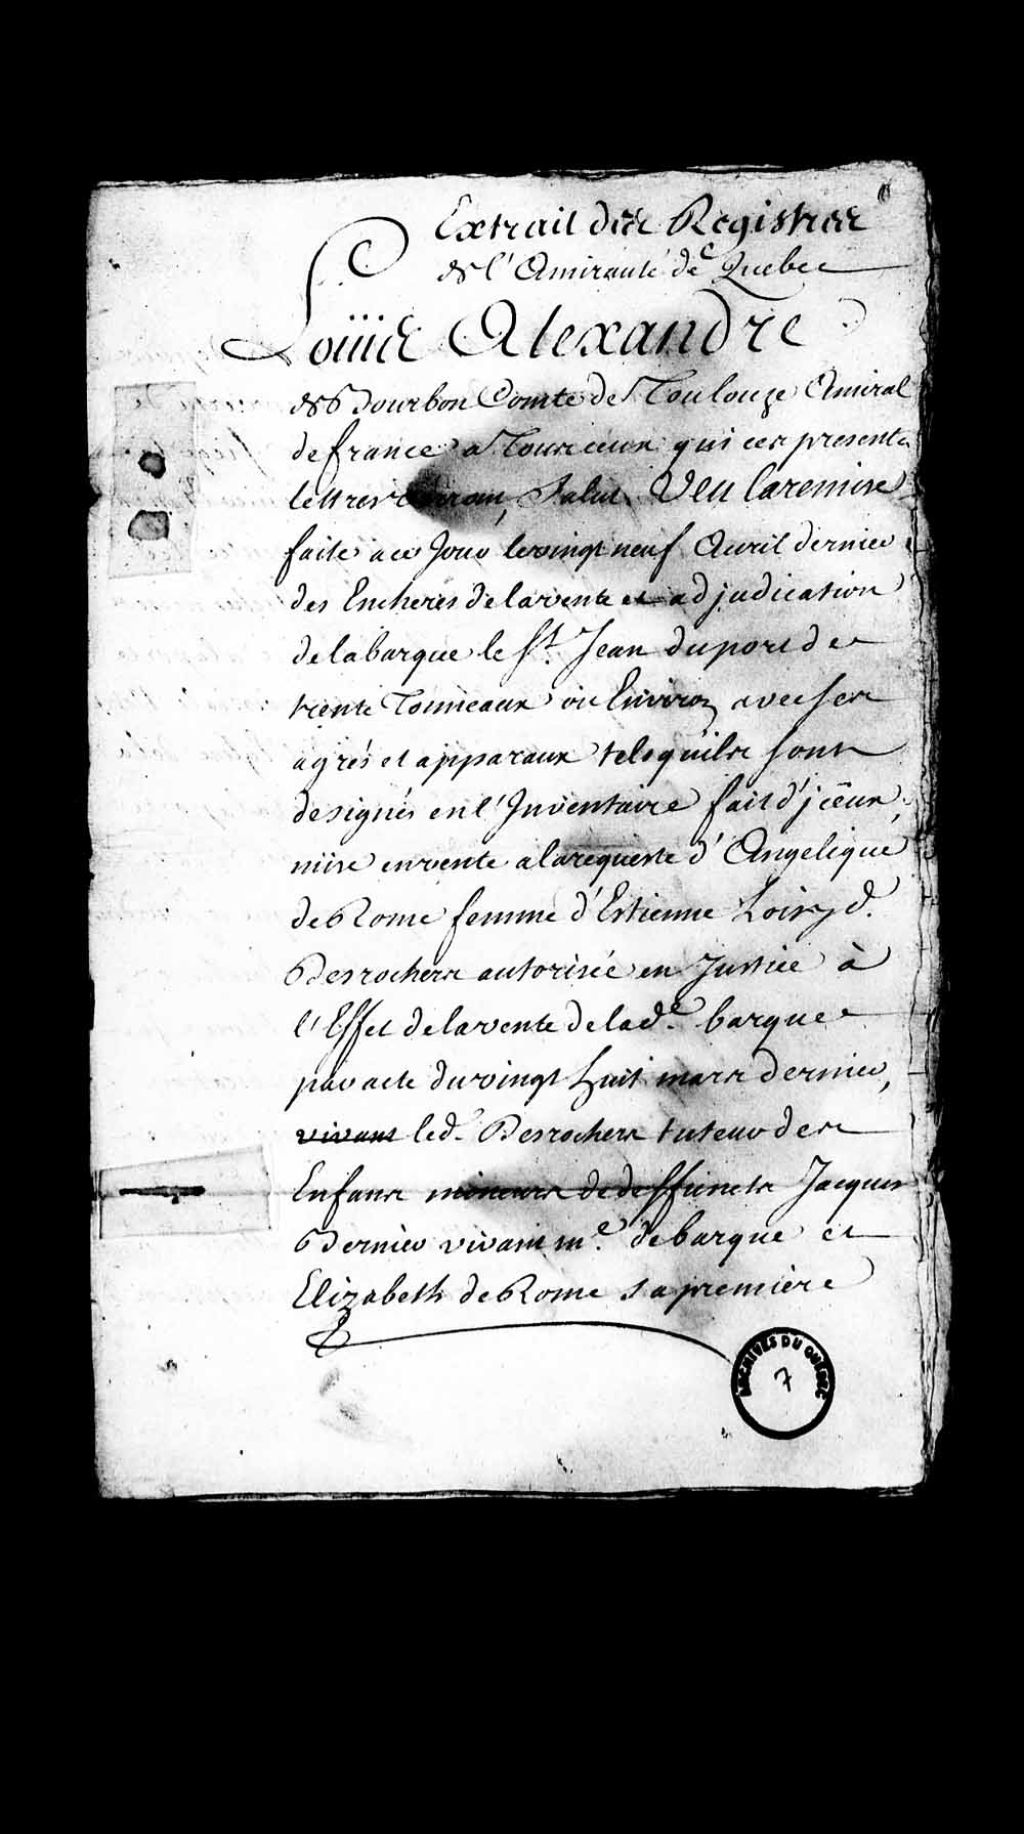 Extrait des Registres
de l'Amirauté de Quebec
Louis Alexandre
de Bourbon Comte de Toulouze Amiral
de france a Tous ceux qui ces presentes
lettres verront, Salut. Veu la remise
faite a ce Jour le vingt neuf Avril dernier
des Encheres de la vente et adjudication
de la barque le St. Jean du port de
trente Tonneaux ou Environ avec ses
agrés et apparaux tels quils sont
designés en l'Inventaire fait d'jceux,
mise en vente a la requeste d'Angelique
de Rome femme d'Estienne Loisy d.
Desrochers autorisée en Justice à
l'Effet de la vente de lad.e barque
par acte du vingt huit mars dernier,
vivant led. Desrochers tuteur des
Enfans mineurs de deffuncts Jacques
Bernier vivant m.e de barque et
Elizabeth de Rome sa premiere
ARCHIVES DU QUÉBEC
7